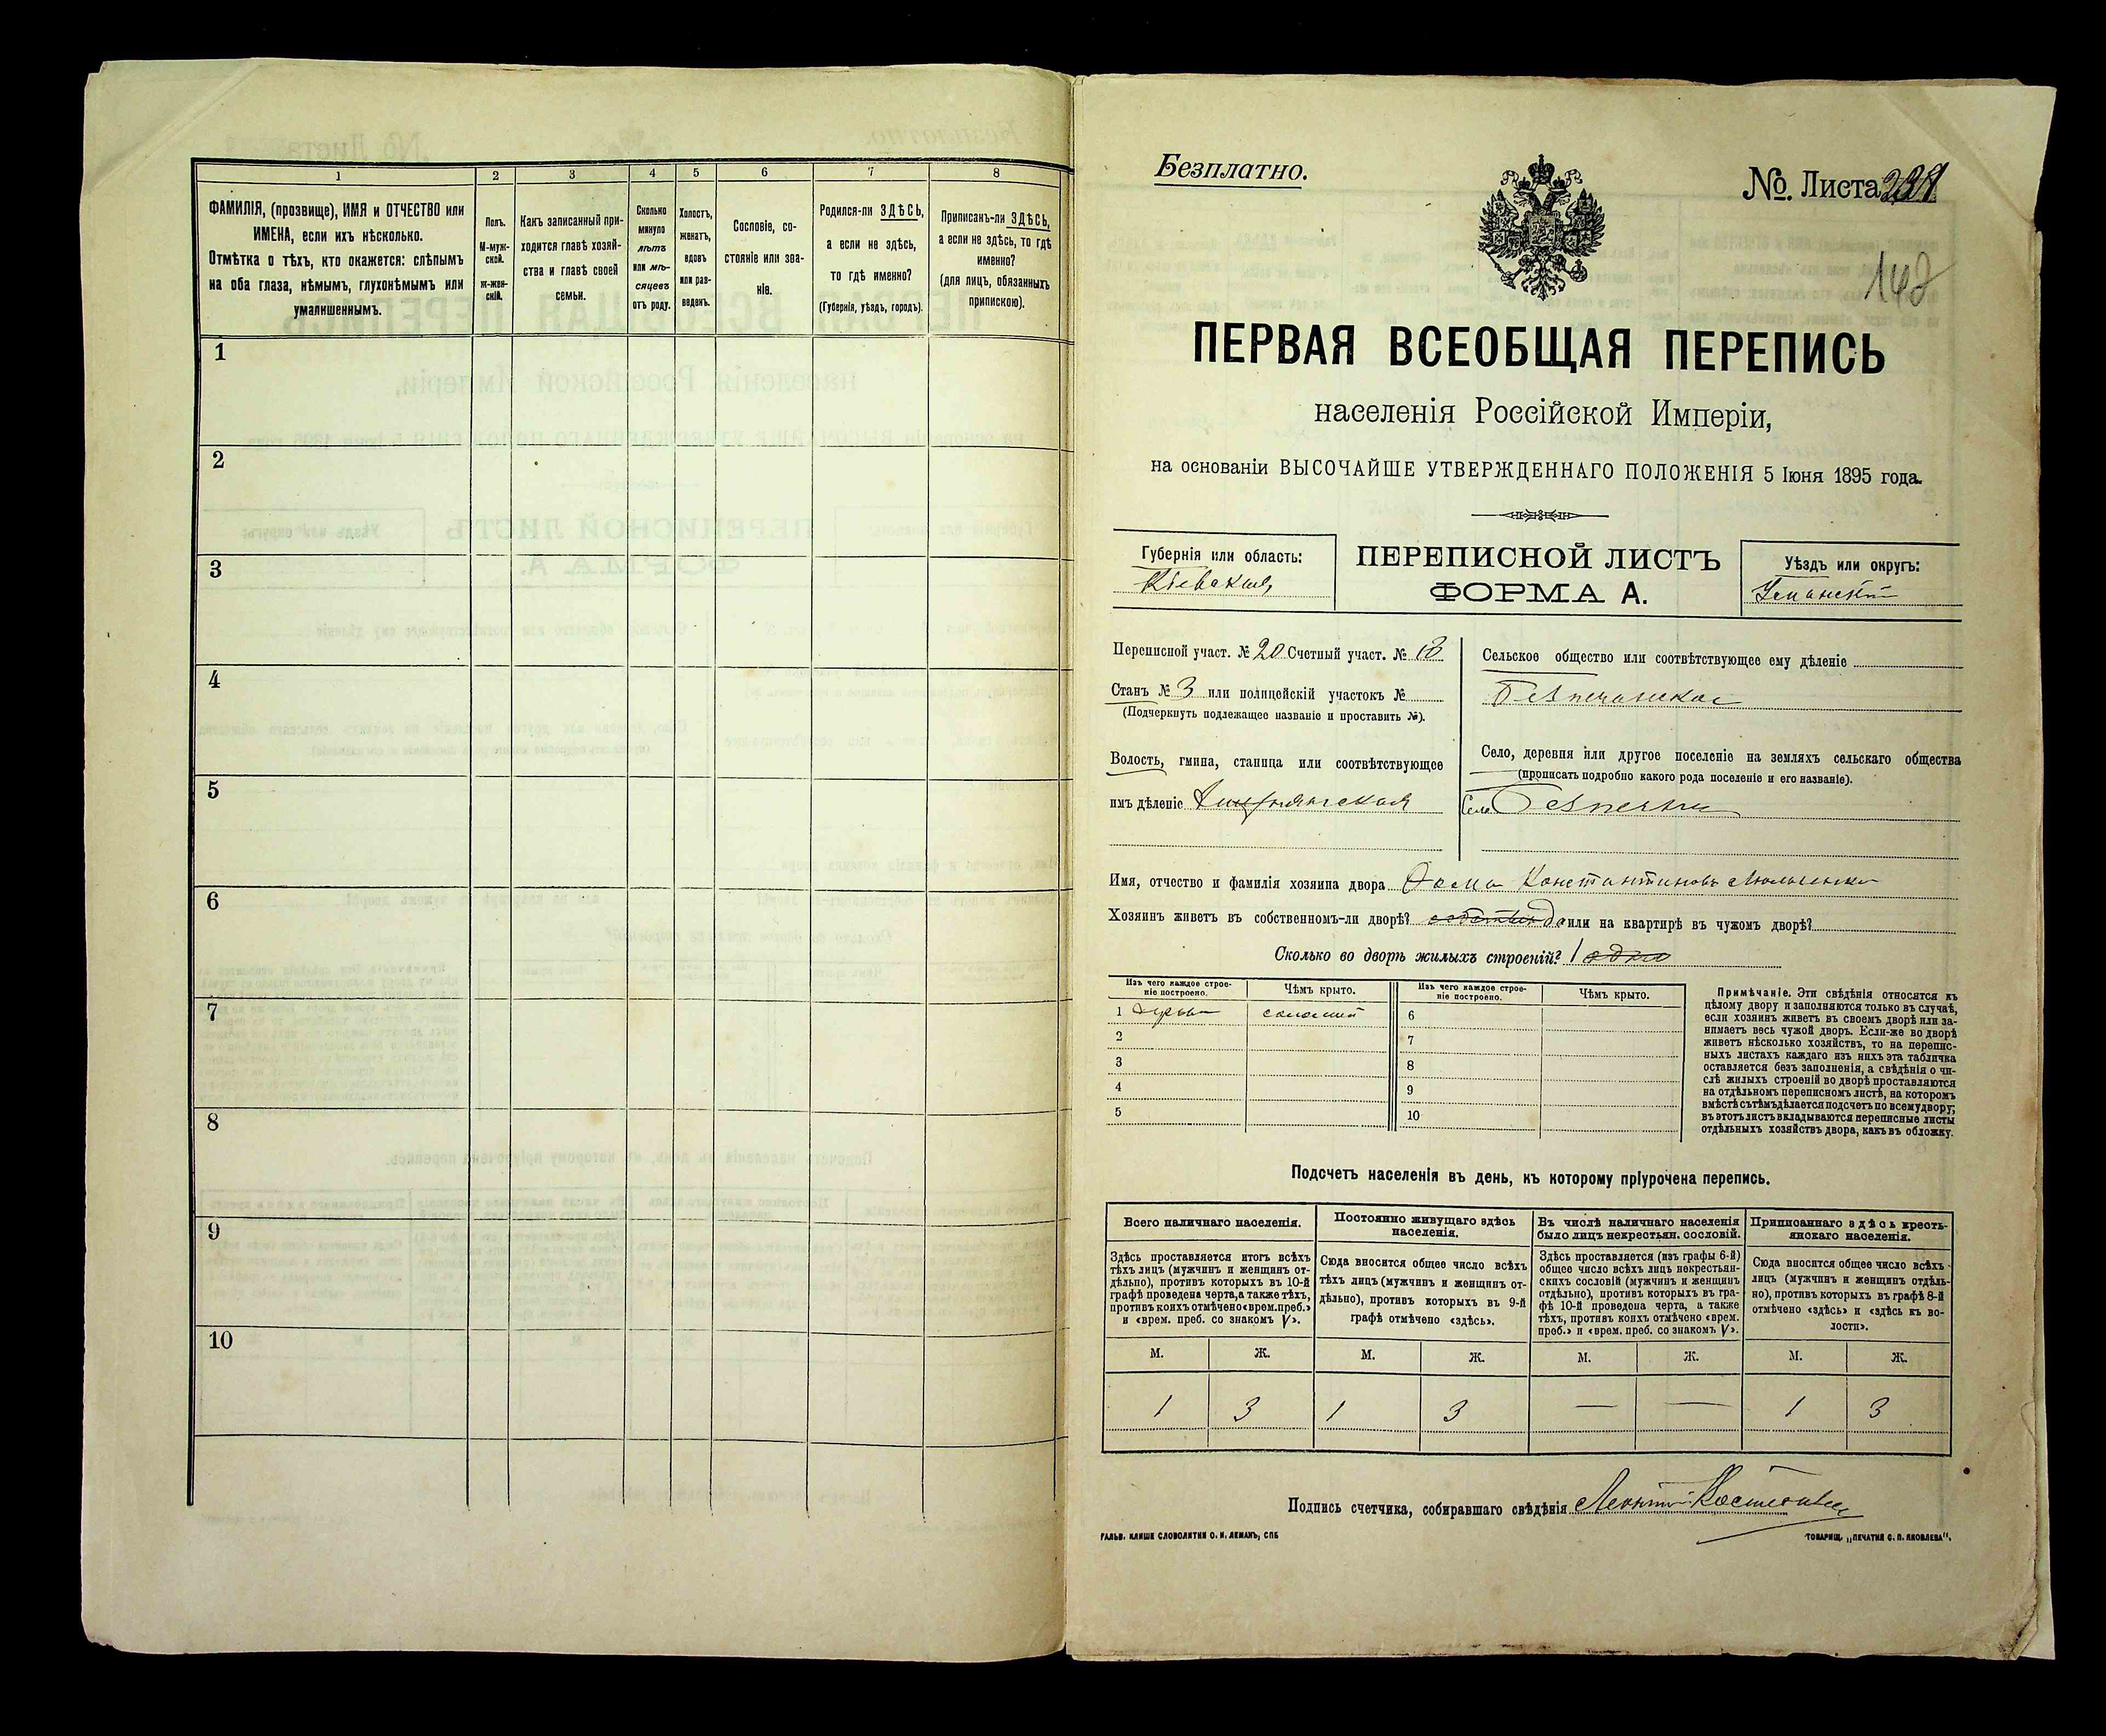 1
2
3
4
5
6
7
8
ФАМИЛІЯ, (прозвище), ИМЯ и ОТЧЕСТВО или
ИМЕНА, если ихъ нѣсколько.
Отмѣтка о тѣхъ, кто окажется: слѣпымъ
на оба глаза, нѣмымъ, глухонѣмымъ или
умалишеннымъ.
Полъ.
М-муж-
ской.
Ж-жен-
скій.
Какъ записанный при-
ходится главѣ хозяй-
ства и главѣ своей
семьи.
Сколько
минуло
лѣтъ
или мѣ-
сяцевъ
отъ роду.
Холостъ,
женатъ,
вдовъ
или раз-
веденъ.
Сословіе, со-
стояніе или зва-
ніе.
Родился-ли ЗДѢСЬ,
а если не здѣсь,
то гдѣ именно?
(Губернія, уѣздъ, городъ).
Приписанъ-ли ЗДѢСЬ,
а если не здѣсь, то гдѣ
именно?
(для лицъ, обязанныхъ
припискою).
1
2
3
4
5
6
7
8
9
10
Безплатно.
№. Листа
148
ПЕРВАЯ ВСЕОБЩАЯ ПЕРЕПИСЬ
населенія Россійской Имперіи,
на основаніи ВЫСОЧАЙШЕ УТВЕРЖДЕННАГО ПОЛОЖЕНІЯ 5 Іюня 1895 года.
Губернія или область:
Кіевская
ПЕРЕПИСНОЙ ЛИСТЪ
ФОРМА А.
Уѣздъ или округъ:
Уманскій
Переписной участ. № 20 Счетный участ. № 18
Станъ № 3 или полицейскій участокъ №
(Подчеркнуть подлежащее названіе и проставить №).
Волость, гмина, станица или соотвѣтствующее
имъ дѣленіе
Сельское общество или соотвѣтствующее ему дѣленіе
Безпечанское
Село, деревня или другое поселеніе на земляхъ сельскаго общества
(прописать подробно какого рода поселеніе и его названіе).
Село Безпечны
Имя, отчество и фамилія хозяина двора Фома Константиновъ
Хозяинъ живетъ въ собственномъ-ли дворѣ? да или на квартирѣ въ чужомъ дворѣ?
Сколько во дворѣ жилыхъ строеній? 1 одно
Изъ чего каждое строе-
ніе построено.
Чѣмъ крыто.
Изъ чего каждое строе-
ніе построено.
Чѣмъ крыто.
1 соломой
2
3
4
5
6
7
8
9
10
Примѣчаніе. Эти свѣдѣнія относятся къ
цѣлому двору и заполняются только въ случаѣ,
если хозяинъ живетъ въ своемъ дворѣ или за-
нимаетъ весь чужой дворъ. Если-же во дворѣ
живетъ нѣсколько хозяйствъ, то на перепис-
ныхъ листахъ каждаго изъ нихъ эта табличка
оставляется безъ заполненія, а свѣдѣнія о чи-
слѣ жилыхъ строеній во дворѣ проставляются
на отдѣльномъ переписномъ листѣ, на которомъ
вмѣстѣ съ тѣмъ дѣлается подсчетъ по всему двору;
въ этотъ листъ вкладываются переписные листы
отдѣльныхъ хозяйствъ двора, какъ въ обложку.
Подсчетъ населенія въ день, къ которому пріурочена перепись.
Всего наличнаго населенія.
Здѣсь проставляется итогъ всѣхъ
тѣхъ лицъ (мужчинъ и женщинъ от-
дѣльно), противъ которыхъ въ 10-й
графѣ проведена черта, а также тѣхъ,
противъ коихъ отмѣчено «врем. преб.»
и «врем. преб. со знакомъ V».
Постоянно живущаго здѣсь
населенія.
Сюда вносится общее число всѣхъ
тѣхъ лицъ (мужчинъ и женщинъ от-
дѣльно), противъ которыхъ въ 9-й
графѣ отмѣчено «здѣсь».
Въ числѣ наличнаго населенія
было лицъ некрестьян. сословій.
Здѣсь проставляется (изъ графы 6-й)
общее число всѣхъ лицъ некрестьян-
скихъ сословій (мужчинъ и женщинъ
отдѣльно), противъ которыхъ въ гра-
фѣ 10-й проведена черта, а также
тѣхъ, противъ коихъ отмѣчено «врем.
преб.» и «врем. преб. со знакомъ V».
Приписаннаго здѣсь кресть-
янскаго населенія.
Сюда вносится общее число всѣхъ
лицъ (мужчинъ и женщинъ отдѣль-
но), противъ которыхъ въ графѣ 8-й
отмѣчено «здѣсь» и «здѣсь къ во-
лости».
М. Ж. М. Ж. М. Ж. М. Ж.
1 3 1 3 — — 1 3
Подпись счетчика, собиравшаго свѣдѣнія
ГАЛЬВ. КЛИШЕ СЛОВОЛИТНИ О. И. ЛЕМАНЪ, СПБ
ТОВАРИЩ. „ПЕЧАТНЯ С. П. ЯКОВЛЕВА".